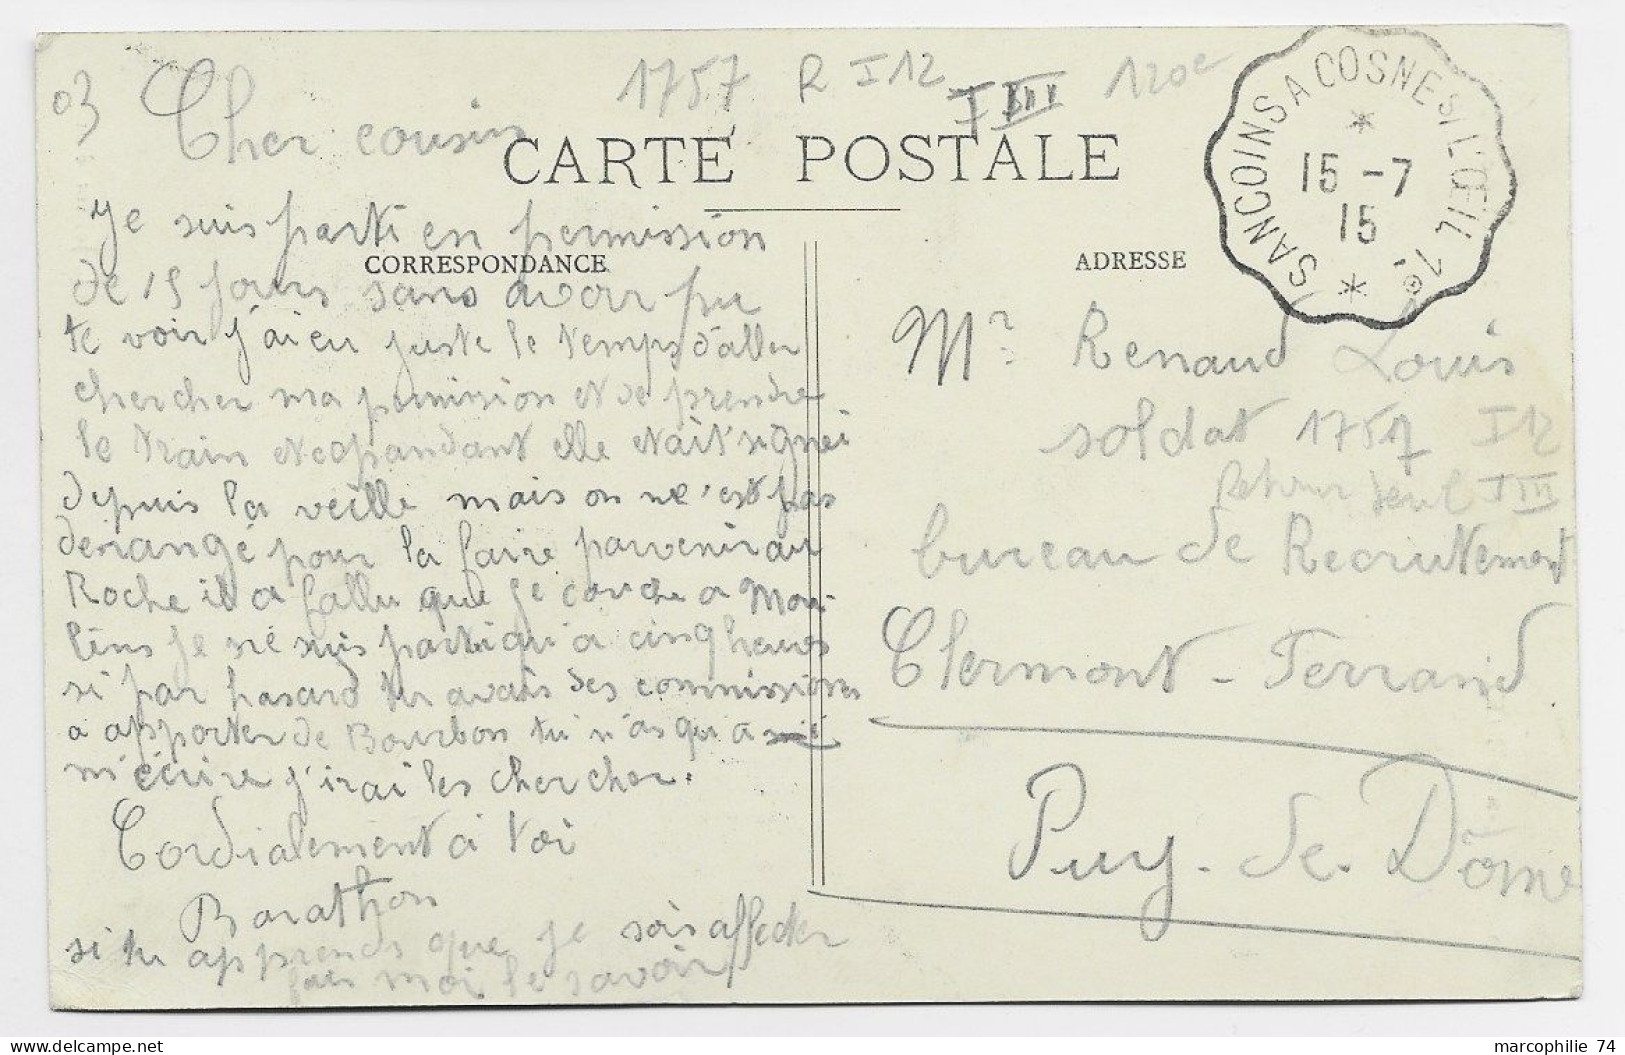 03
1757 R I 12 I III 120e
Cher cousin
CARTE POSTALE
CORRESPONDANCE
ADRESSE
SANCOINS A COSNE S/ L'ŒIL 1°
15 -7
15
Je suis parti en permission
de 15 jours sans avoir pu
te voir j'ai eu juste le temps d'aller
chercher ma permission et de prendre
le train et cependant elle etait signé
depuis la veille mais on ne s'est pas
derangé pour la faire parvenir au
Roche il a fallu que je couche a Mou-
lins je ne suis parti qu'a cinq heures
si par hasard tu avais des commissions
a apporter de Bourbon tu n'as qu'a
m'écrire j'irai les chercher.
Cordialement a toi
Barathon
si tu apprends que je sois affecter
fais moi le savoir
Mr Renaud Louis
soldat 1757 I 12
Retour I III
bureau de Recrutement
Clermont-Ferrand
Puy-de-Dôme
marcophilie 74